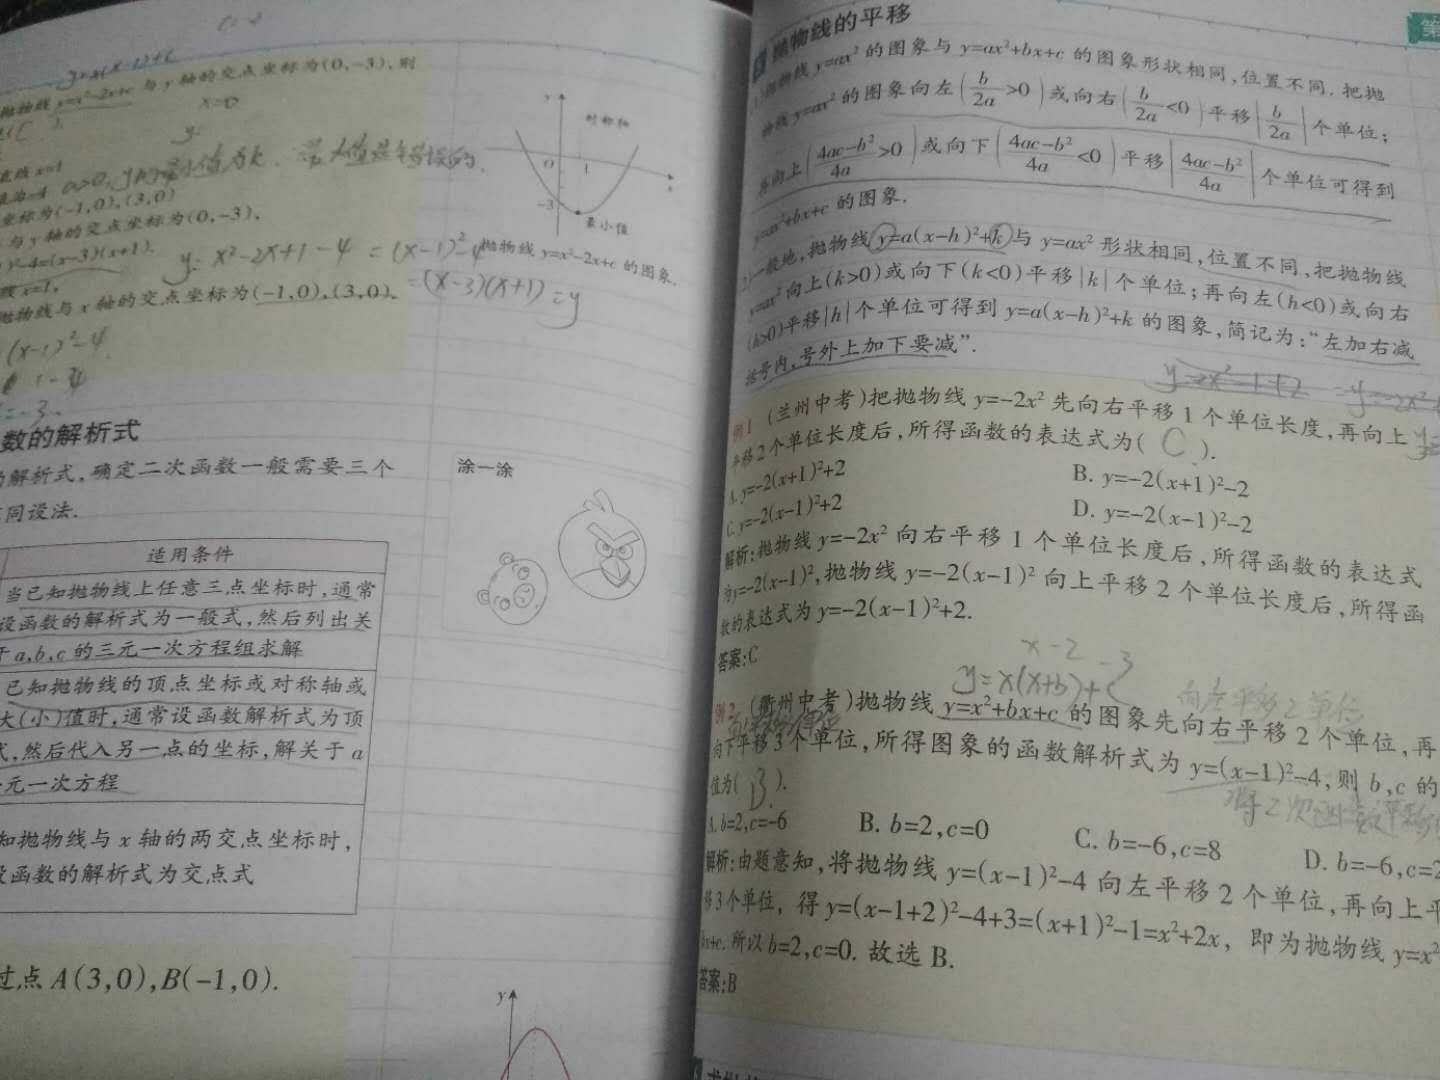 抛物线y=x²-2x+c 与 y 轴的交点坐标为(0,-3),则
x=0
y=
直线x=1
a>0,y的最小值为k.
坐标为(-1,0),(3,0)
与y轴的交点坐标为(0,-3),
)²-4=(x-3)(x+1).
线x=1,
抛物线与 x 轴的交点坐标为(-1,0),(3,0).
y= x²-2x+1-4 = (x-1)²-4
=(x-3)(x+1)=y
(x-1)²-4
=-3.
y
对称轴
O
1
x
-3
最小值
抛物线 y=x²-2x+c 的图象.
数的解析式
解析式,确定二次函数一般需要三个
同设法.
适用条件
当已知抛物线上任意三点坐标时,通常
设函数的解析式为一般式,然后列出关
于a,b,c的三元一次方程组求解
已知抛物线的顶点坐标或对称轴或
大(小)值时,通常设函数解析式为顶
式,然后代入另一点的坐标,解关于 a
元一次方程
知抛物线与 x 轴的两交点坐标时,
设函数的解析式为交点式
涂一涂
过点A(3,0),B(-1,0).
y
第
抛物线的平移
抛物线y=ax²的图象与 y=ax²+bx+c 的图象形状相同,位置不同.把抛
物线y=ax²的图象向左(b/2a>0)或向右(b/2a<0)平移|b/2a|个单位;
再向上(4ac-b²/4a>0)或向下(4ac-b²/4a<0)平移|4ac-b²/4a|个单位可得到
y=ax²+bx+c 的图象.
一般地,抛物线y=a(x-h)²+k与 y=ax² 形状相同,位置不同,把抛物线
y=ax²向上(k>0)或向下(k<0)平移|k|个单位;再向左(h<0)或向右
(h>0)平移|h|个单位可得到 y=a(x-h)²+k 的图象,简记为:“左加右减
括号内,号外上加下要减”.
例1 (兰州中考)把抛物线 y=-2x² 先向右平移1个单位长度,再向上
平移2个单位长度后,所得函数的表达式为( C ).
A. y=-2(x+1)²+2
B. y=-2(x+1)²-2
C. y=-2(x-1)²+2
D. y=-2(x-1)²-2
解析:抛物线 y=-2x² 向右平移 1 个单位长度后,所得函数的表达式
为y=-2(x-1)²,抛物线 y=-2(x-1)² 向上平移 2 个单位长度后,所得函
数的表达式为 y=-2(x-1)²+2.
答案:C
x-2 -3
y=x(x+b)+c
向左平移2单位
例2 (衢州中考)抛物线 y=x²+bx+c 的图象先向右平移 2 个单位,再
向下平移3个单位,所得图象的函数解析式为 y=(x-1)²-4,则 b,c 的
值为( B ).
A. b=2,c=-6
B. b=2,c=0
C. b=-6,c=8
D. b=-6,c=2
解析:由题意知,将抛物线 y=(x-1)²-4 向左平移 2 个单位,再向上平
移3个单位,得 y=(x-1+2)²-4+3=(x+1)²-1=x²+2x,即为抛物线 y=x²
bx+c.所以 b=2,c=0.故选 B.
答案:B